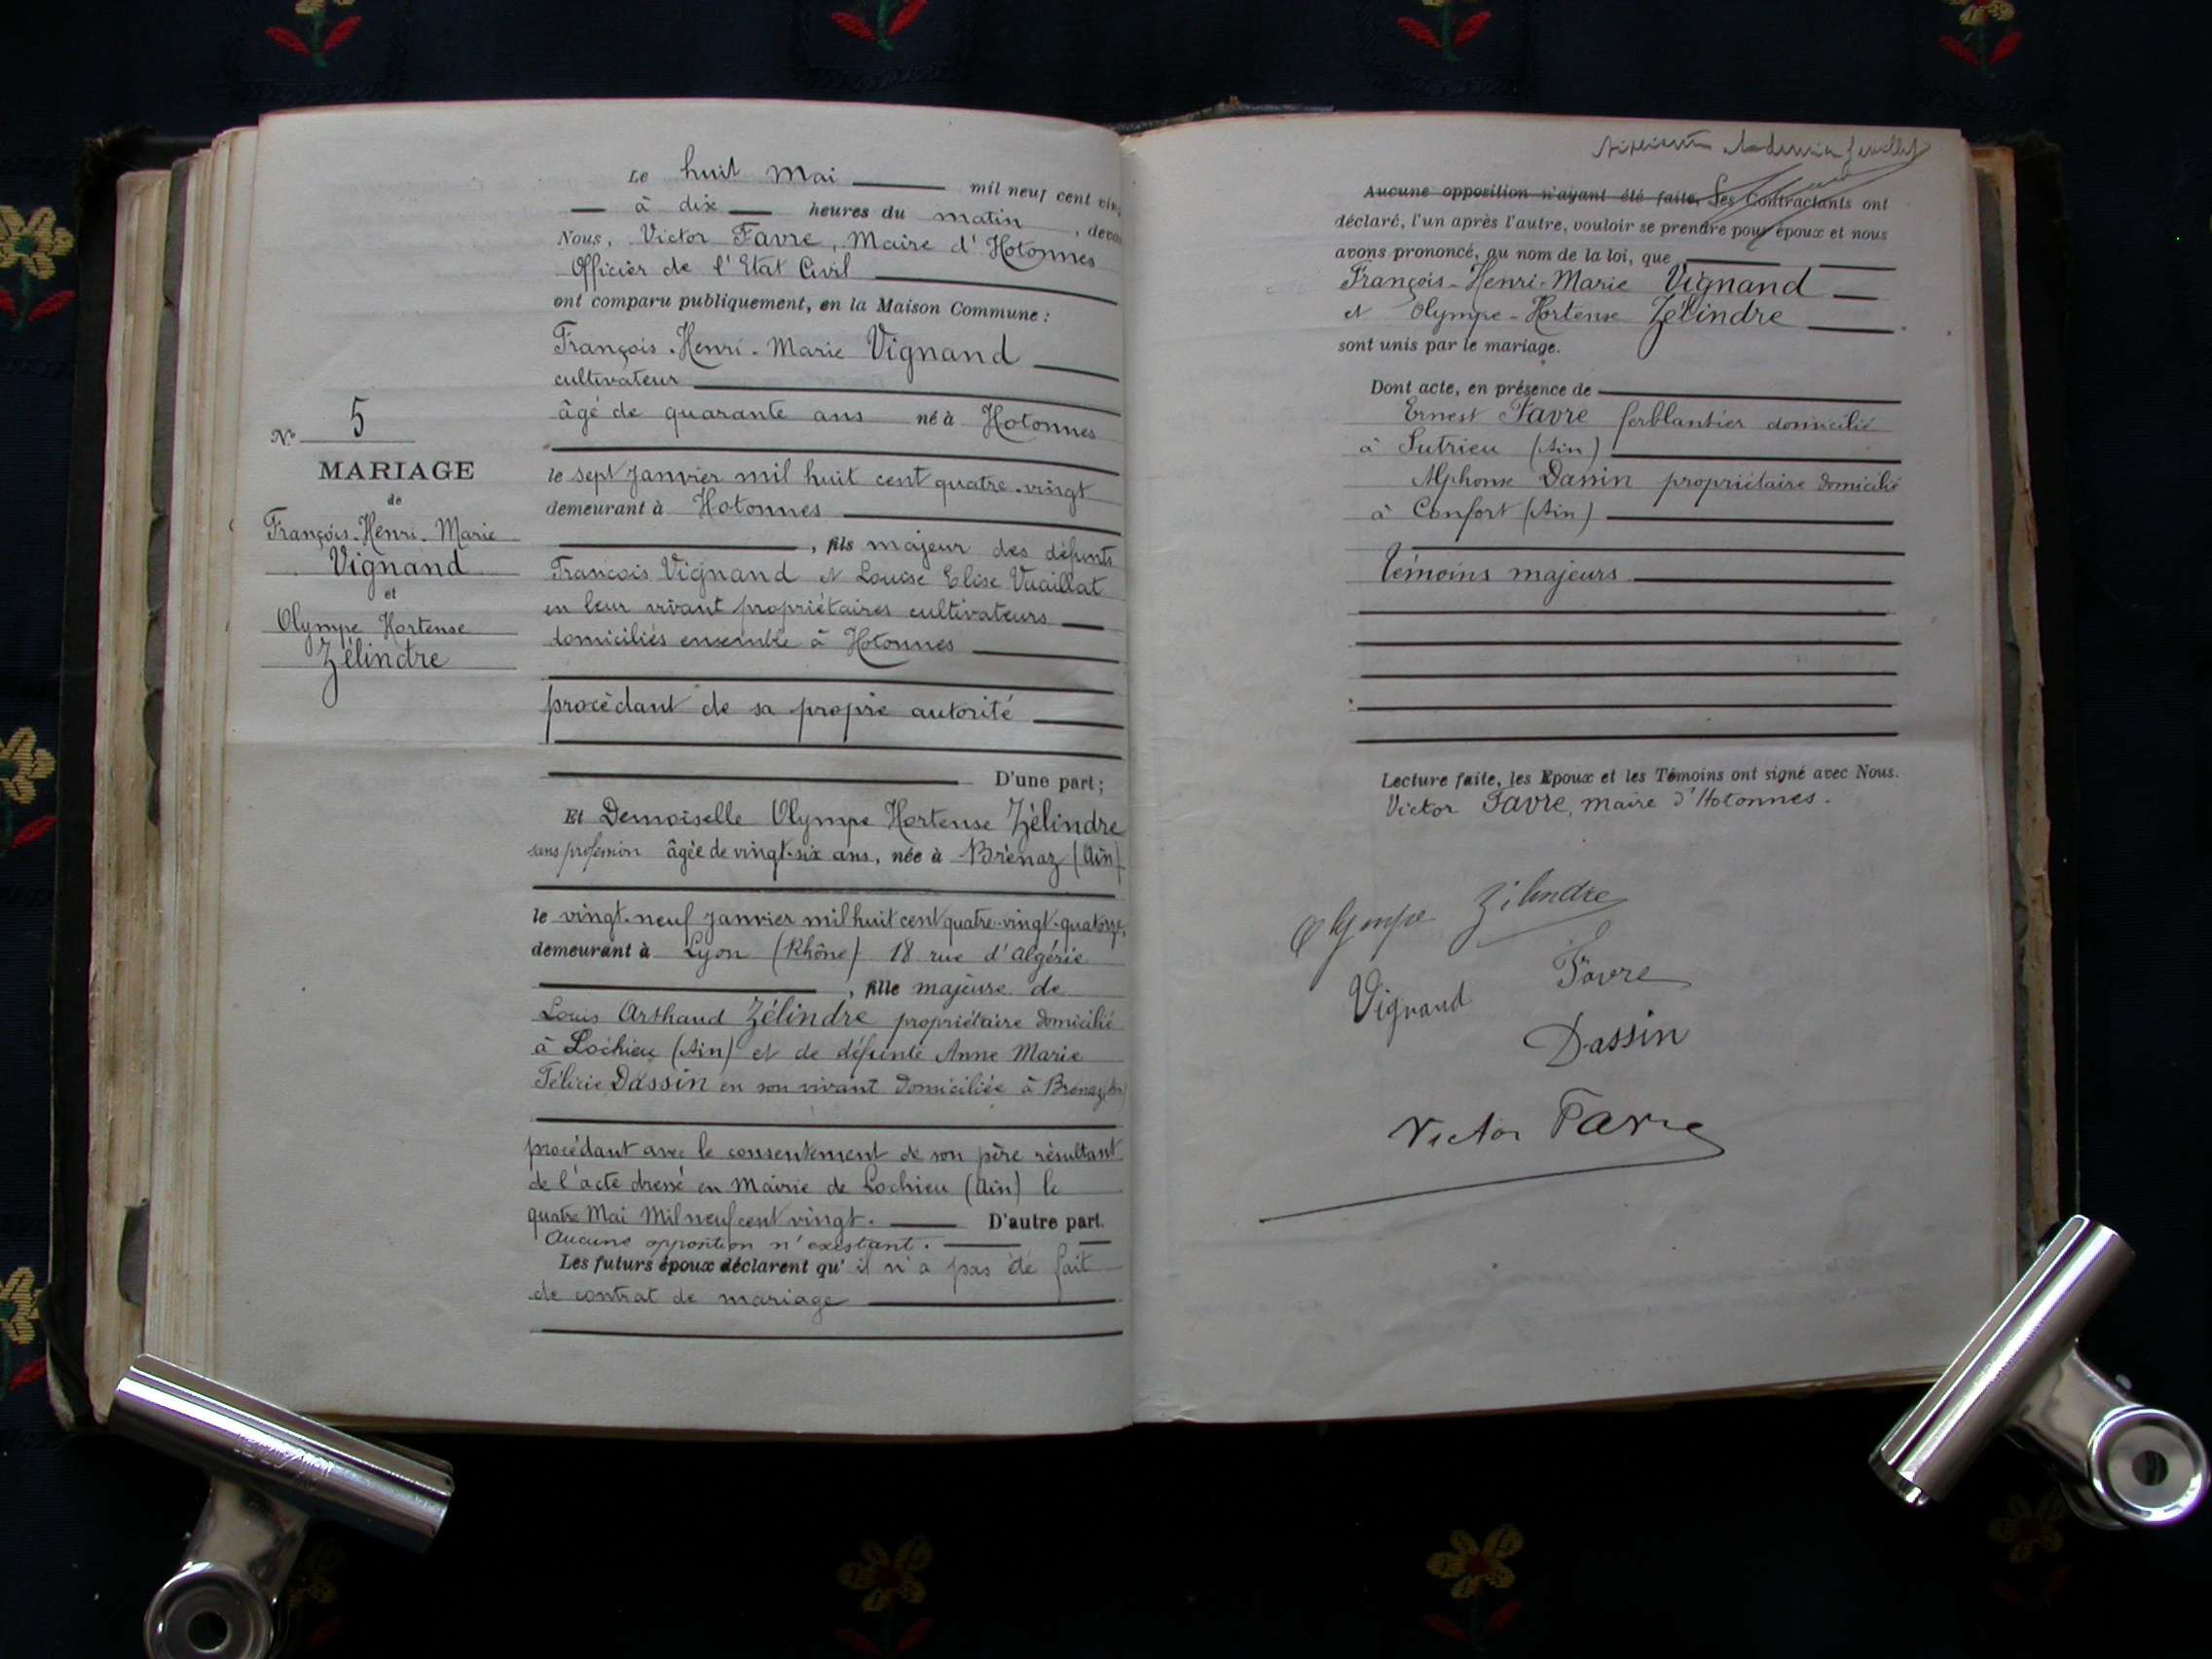 Le huit Mai mil neuf cent vin
à dix heures du matin, deva
Nous, Victor Favre, Maire d'Hotonnes
Officier de l'Etat Civil
ont comparu publiquement, en la Maison Commune :
François-Henri-Marie Vignand
cultivateur
âgé de quarante ans né à Hotonnes
le sept janvier mil huit cent quatre-vingt
demeurant à Hotonnes
, fils majeur des défunts
François Vignand et Louise Elise Vuaillat
en leur vivant propriétaires cultivateurs
domiciliés ensemble à Hotonnes
procédant de sa propre autorité
D'une part ;
Et Demoiselle Olympe Hortense Zélindre
sans profession âgée de vingt-six ans, née à Brénaz (Ain)
le vingt-neuf janvier mil huit cent quatre-vingt-quatorze,
demeurant à Lyon (Rhône) 18 rue d'Algérie
, fille majeure de
Louis Arthaud Zélindre propriétaire domicilié
à Lochieu (Ain) et de défunte Anne Marie
Félicie Dassin en son vivant domiciliée à Brénaz (Ain)
procédant avec le consentement de son père résultant
de l'acte dressé en Mairie de Lochieu (Ain) le
quatre Mai Mil neuf cent vingt. D'autre part.
Aucune opposition n'existant.
Les futurs époux déclarent qu'il n'a pas été fait
de contrat de mariage
N° 5
MARIAGE
de
François-Henri-Marie
Vignand
et
Olympe Hortense
Zélindre
feuillet
Aucune opposition n'ayant été faite, Les Contractants ont
déclaré, l'un après l'autre, vouloir se prendre pour époux et nous
avons prononcé, au nom de la loi, que
François-Henri-Marie Vignand
et Olympe-Hortense Zélindre
sont unis par le mariage.
Dont acte, en présence de
Ernest Favre ferblantier domicilié
à Sutrieu (Ain)
Alphonse Dassin propriétaire domicilié
à Confort (Ain)
témoins majeurs
Lecture faite, les Epoux et les Témoins ont signé avec Nous.
Victor Favre, maire d'Hotonnes.
Olympe Zélindre
Favre
Vignand
Dassin
Victor Favre